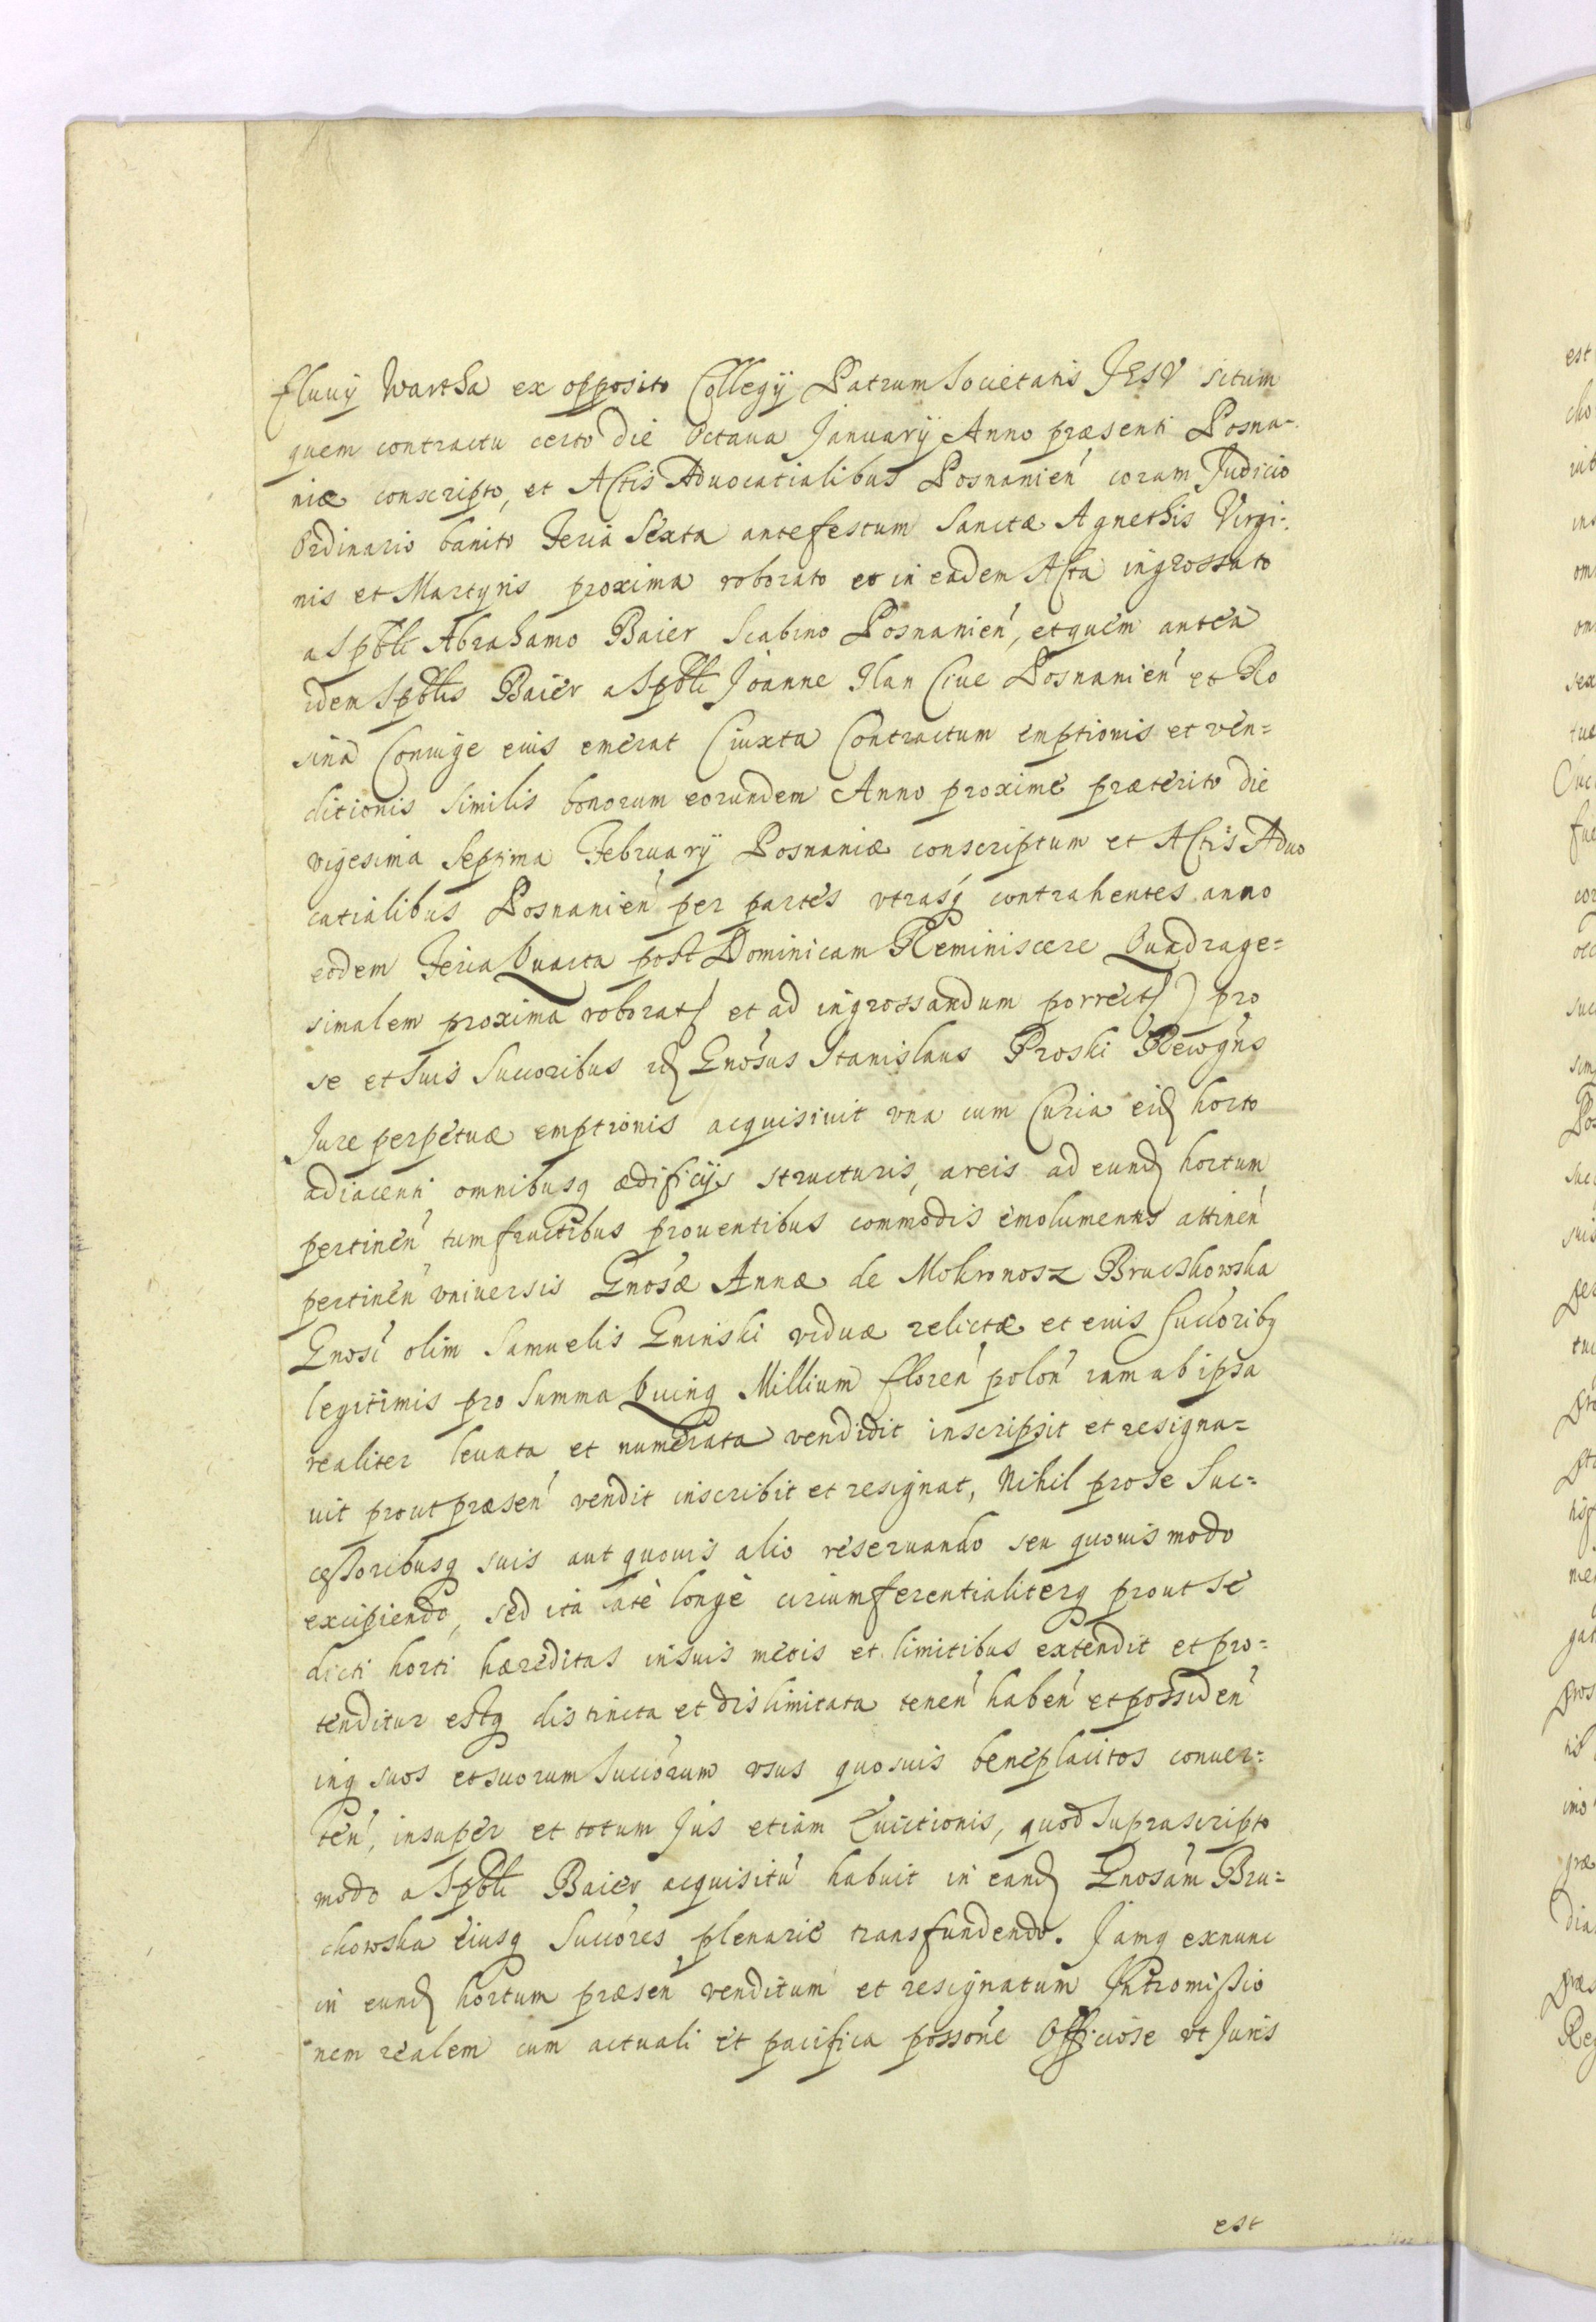 fluuÿ Wartha ex opposito Collegÿ Patrum Societatis JESV situm
quem contractu certo die Octaua Januarÿ Anno præsenti Posna-
niæ conscripto, et Actis Aduocatialibus Posnanień coram Judicio
Ordinario banito Feria Sexta ante festum Sanctæ Agnethis Virgi-
nis et Martyris proxima roborato et in eadem Acta ingrossato
a Spbli Abrahamo Baier Scabino Posnanień, et quem antea
idem Spblis Baier a Spbli Joanne Ilan Ciue Posnanień et Ro
sina Coniuge eius emerat (iuxta Contractum emptionis et ven=
ditionis similis bonorum eorundem Anno proxime præterito die
vigesima Septima Februarÿ Posnaniæ conscriptum et Actis Aduo
catialibus Posnanień per partes vtrasq contrahentes anno
eodem Feria Quarta post Dominicam Reminiscere Quadrage=
simalem proxima roborat et ad ingrossandum porrect) pro
se et suis Succoribus id Gnosus Stanislaus Proski Recogns
Jure perpetuæ emptionis acquisiuit vna cum Curia eid horto
adiacenti omnibusq ædificÿs structuris, areis ad eund hortum
pertineń tum fructibus prouentibus commodis emolumentis attineń
pertineń vniuersis Gnosæ Annæ de Mokronosz Bruchowska
Gnosi olim Samuelis Gninski viduæ relictæ et eius Succoribq
legitimis pro Summa Quinq Millium floreń poloń iam ab ipsa
realiter leuata et numerata vendidit inscripsit et resigna=
uit prout præseń vendit inscribit et resignat, Nihil pro se Suc=
cessoribusq suis aut quouis alio reseruando seu quouis modo
excipiendo, sed ita late longe circumferentialiterq prout se
dicti horti hæreditas in suis metis et limitibus extendit et pro=
tenditur estq distincta et dislimitata teneń habeń et possideń
inq suos et suorum Succorum vsus quosuis beneplacitos conuer=
teń, insuper et totum Jus etiam Euictionis, quod suprascripto
modo a Spbli Baier acquisitu habuit in eand Gnosam Bru=
chowska eiusq Succores plenarie transfundendo. Jamq exnunc
in eund hortum præseń venditum et resignatum Intromissio
nem realem cum actuali et pacifica possone Officiose vt Juris
est